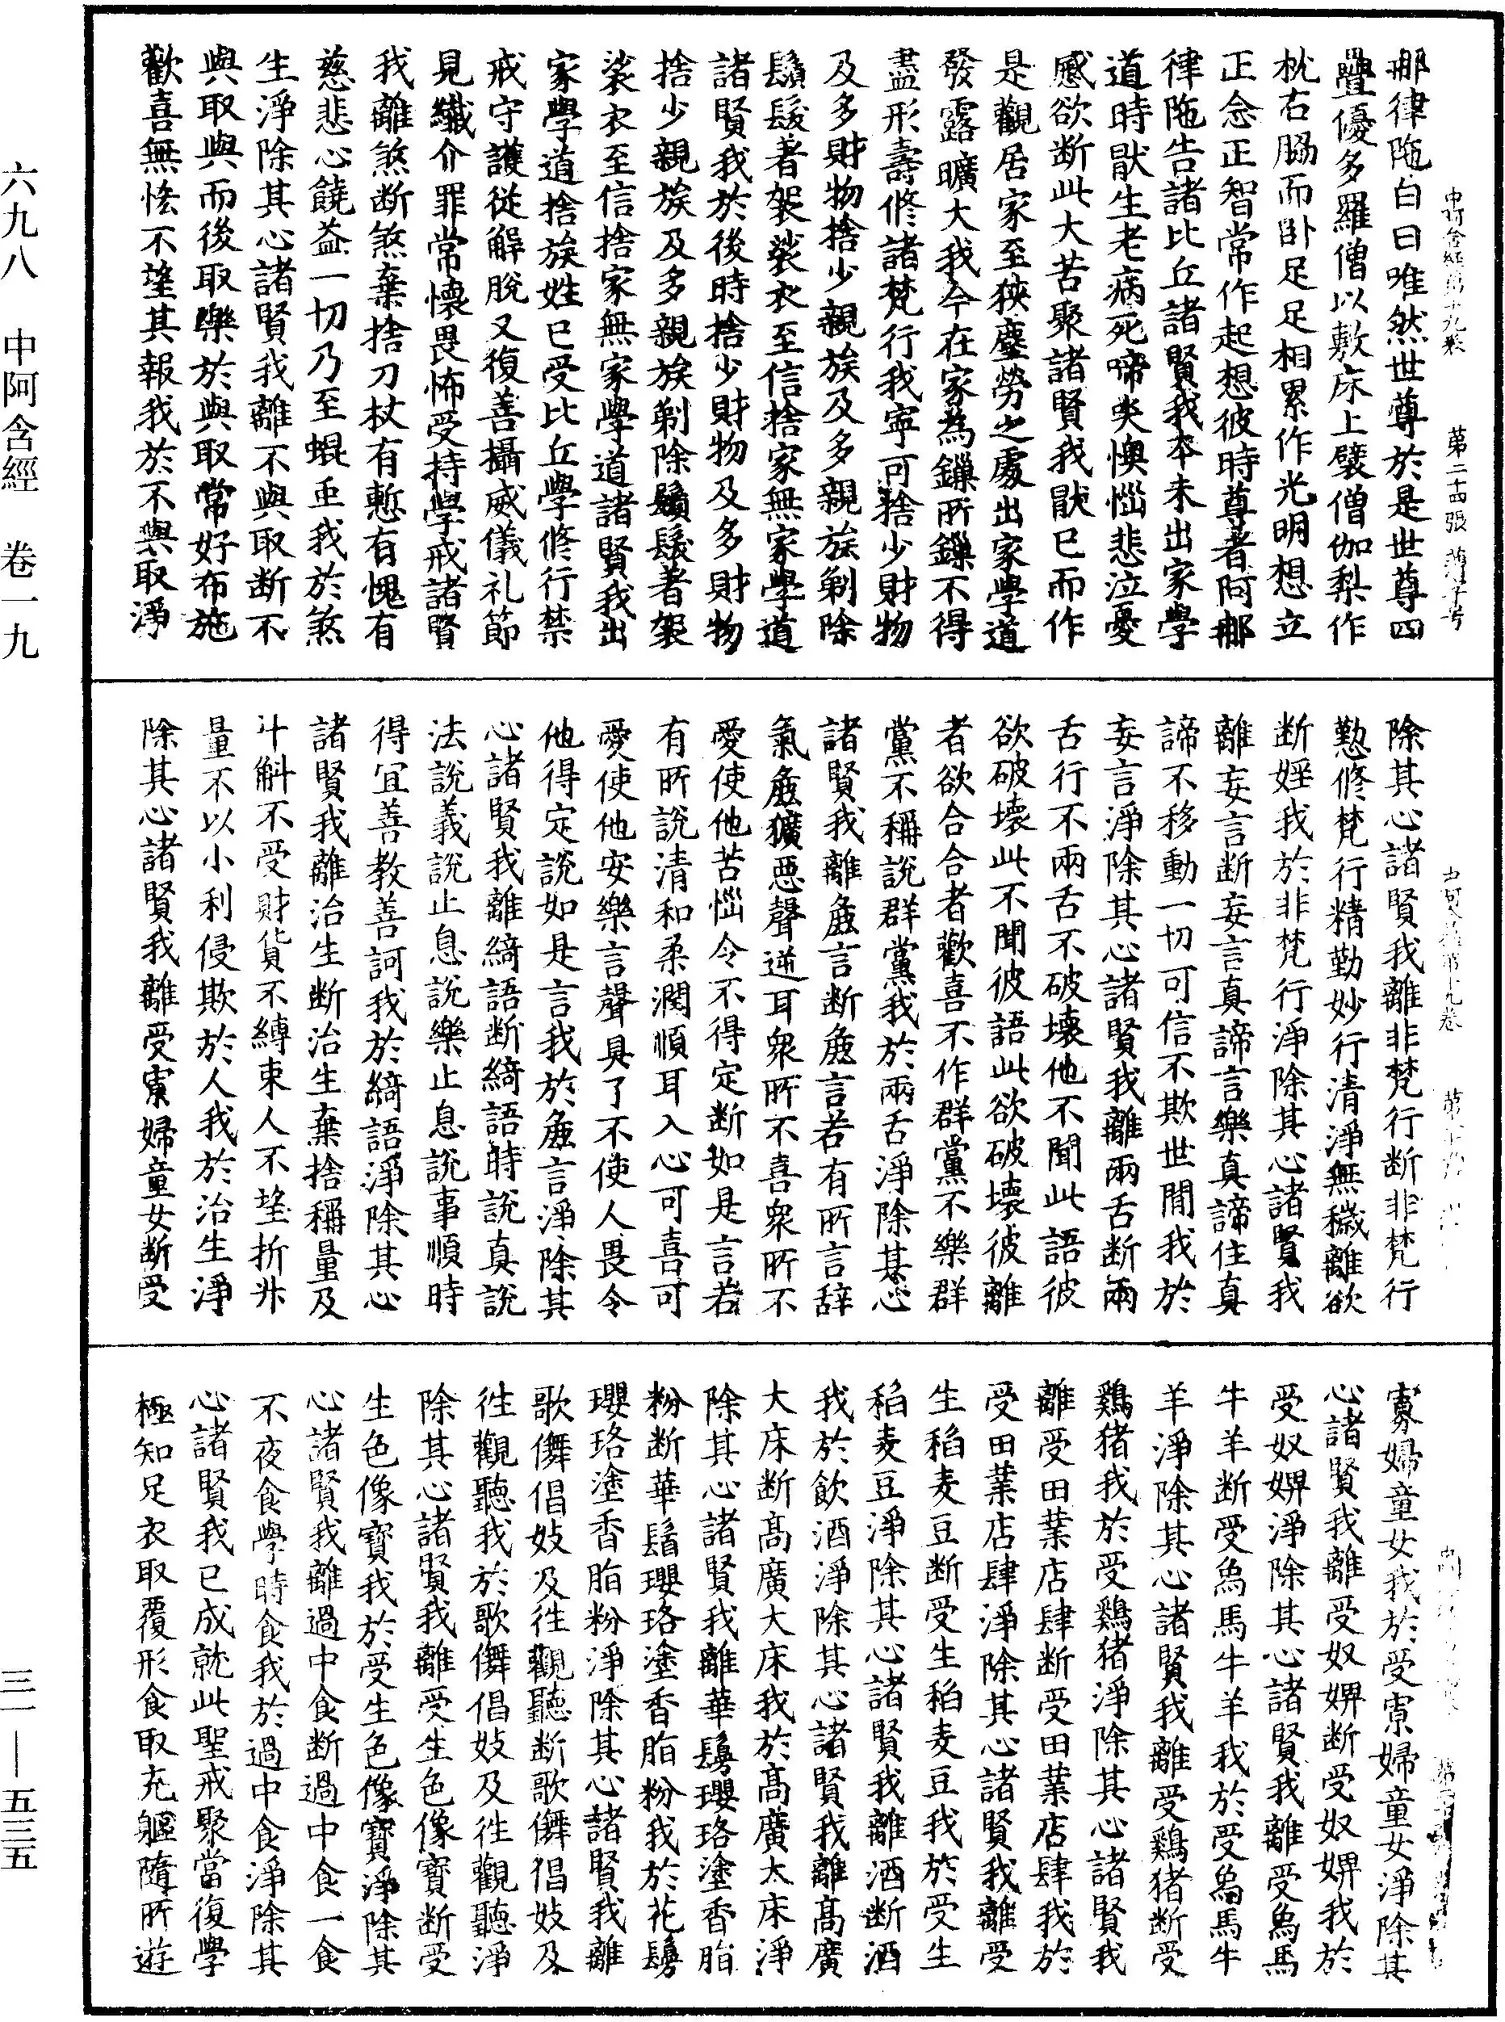 那律陁白曰唯然世尊於是世尊四
疊優多羅僧以敷床上襞僧伽梨作
枕右脇而卧足足相累作光明想立
正念正智常作起想彼時尊者阿那
律陁告諸比丘諸賢我本未出家學
道時猒生老病死啼哭懊惱悲泣憂
慼欲断此大苦聚諸賢我猒已而作
是觀居家至狹塵勞之處出家學道
發露曠大我今在家為鏁所鏁不得
盡形壽修諸梵行我寧可捨少財物
及多財物捨少親族及多親族剃除
鬚髮著袈裟衣至信捨家無家學道
諸賢我於後時捨少財物及多財物
捨少親族及多親族剃除鬚髮著袈
裟衣至信捨家無家學道諸賢我出
家學道捨族姓已受比丘學修行禁
戒守護從解脫又復善攝威儀礼節
見纖介罪常懷畏怖受持學戒諸賢
我離煞断煞棄捨刀杖有慙有愧有
慈悲心饒益一切乃至蜫虫我於煞
生淨除其心諸賢我離不與取断不
與取與而後取樂於與取常好布施
歡喜無悋不望其報我於不與取淨
除其心諸賢我離非梵行断非梵行
懃修梵行精勤妙行清淨無穢離欲
断婬我於非梵行淨除其心諸賢我
離妄言断妄言真諦言樂真諦住真
諦不移動一切可信不欺世間我於
妄言淨除其心諸賢我離兩舌断兩
舌行不兩舌不破壞他不聞此語彼
欲破壞此不聞彼語此欲破壞彼離
者欲合合者歡喜不作群黨不樂群
黨不稱說群黨我於兩舌淨除其心
諸賢我離麁言断麁言若有所言辞
氣麁獷惡聲逆耳衆所不喜衆所不
愛使他苦惱令不得定断如是言若
有所說清和柔潤順耳入心可喜可
愛使他安樂言聲具了不使人畏令
他得定說如是言我於麁言淨除其
心諸賢我離綺語断綺語時說真說
法說義說止息說樂止息說事順時
得宜善教善訶我於綺語淨除其心
諸賢我離治生断治生棄捨稱量及
斗斛不受財貨不縛束人不望折升
量不以小利侵欺於人我於治生淨
除其心諸賢我離受寡婦童女断受
寡婦童女我於受寡婦童女淨除其
心諸賢我離受奴婢断受奴婢我於
受奴婢淨除其心諸賢我離受爲馬
牛羊断受爲馬牛羊我於受爲馬牛
羊淨除其心諸賢我離受鷄猪断受
鷄猪我於受鷄猪淨除其心諸賢我
離受田業店肆断受田業店肆我於
受田業店肆淨除其心諸賢我離受
生稻麦豆断受生稻麦豆我於受生
稻麦豆淨除其心諸賢我離酒断酒
我於飲酒淨除其心諸賢我離高廣
大床断高廣大床我於高廣大床淨
除其心諸賢我離華鬘瓔珞塗香脂
粉断華鬘瓔珞塗香脂粉我於花鬘
瓔珞塗香脂粉淨除其心諸賢我離
歌儛倡妓及徃觀聽断歌儛倡妓及
徃觀聽我於歌儛倡妓及徃觀聽淨
除其心諸賢我離受生色像寶断受
生色像寶我於受生色像寶淨除其
心諸賢我離過中食断過中食一食
不夜食學時食我於過中食淨除其
心諸賢我已成就此聖戒聚當復學
極知足衣取覆形食取充軀隨所遊
中阿含經第十九卷 第二十四張
六九八 中阿含經 卷一九 三一——五三五